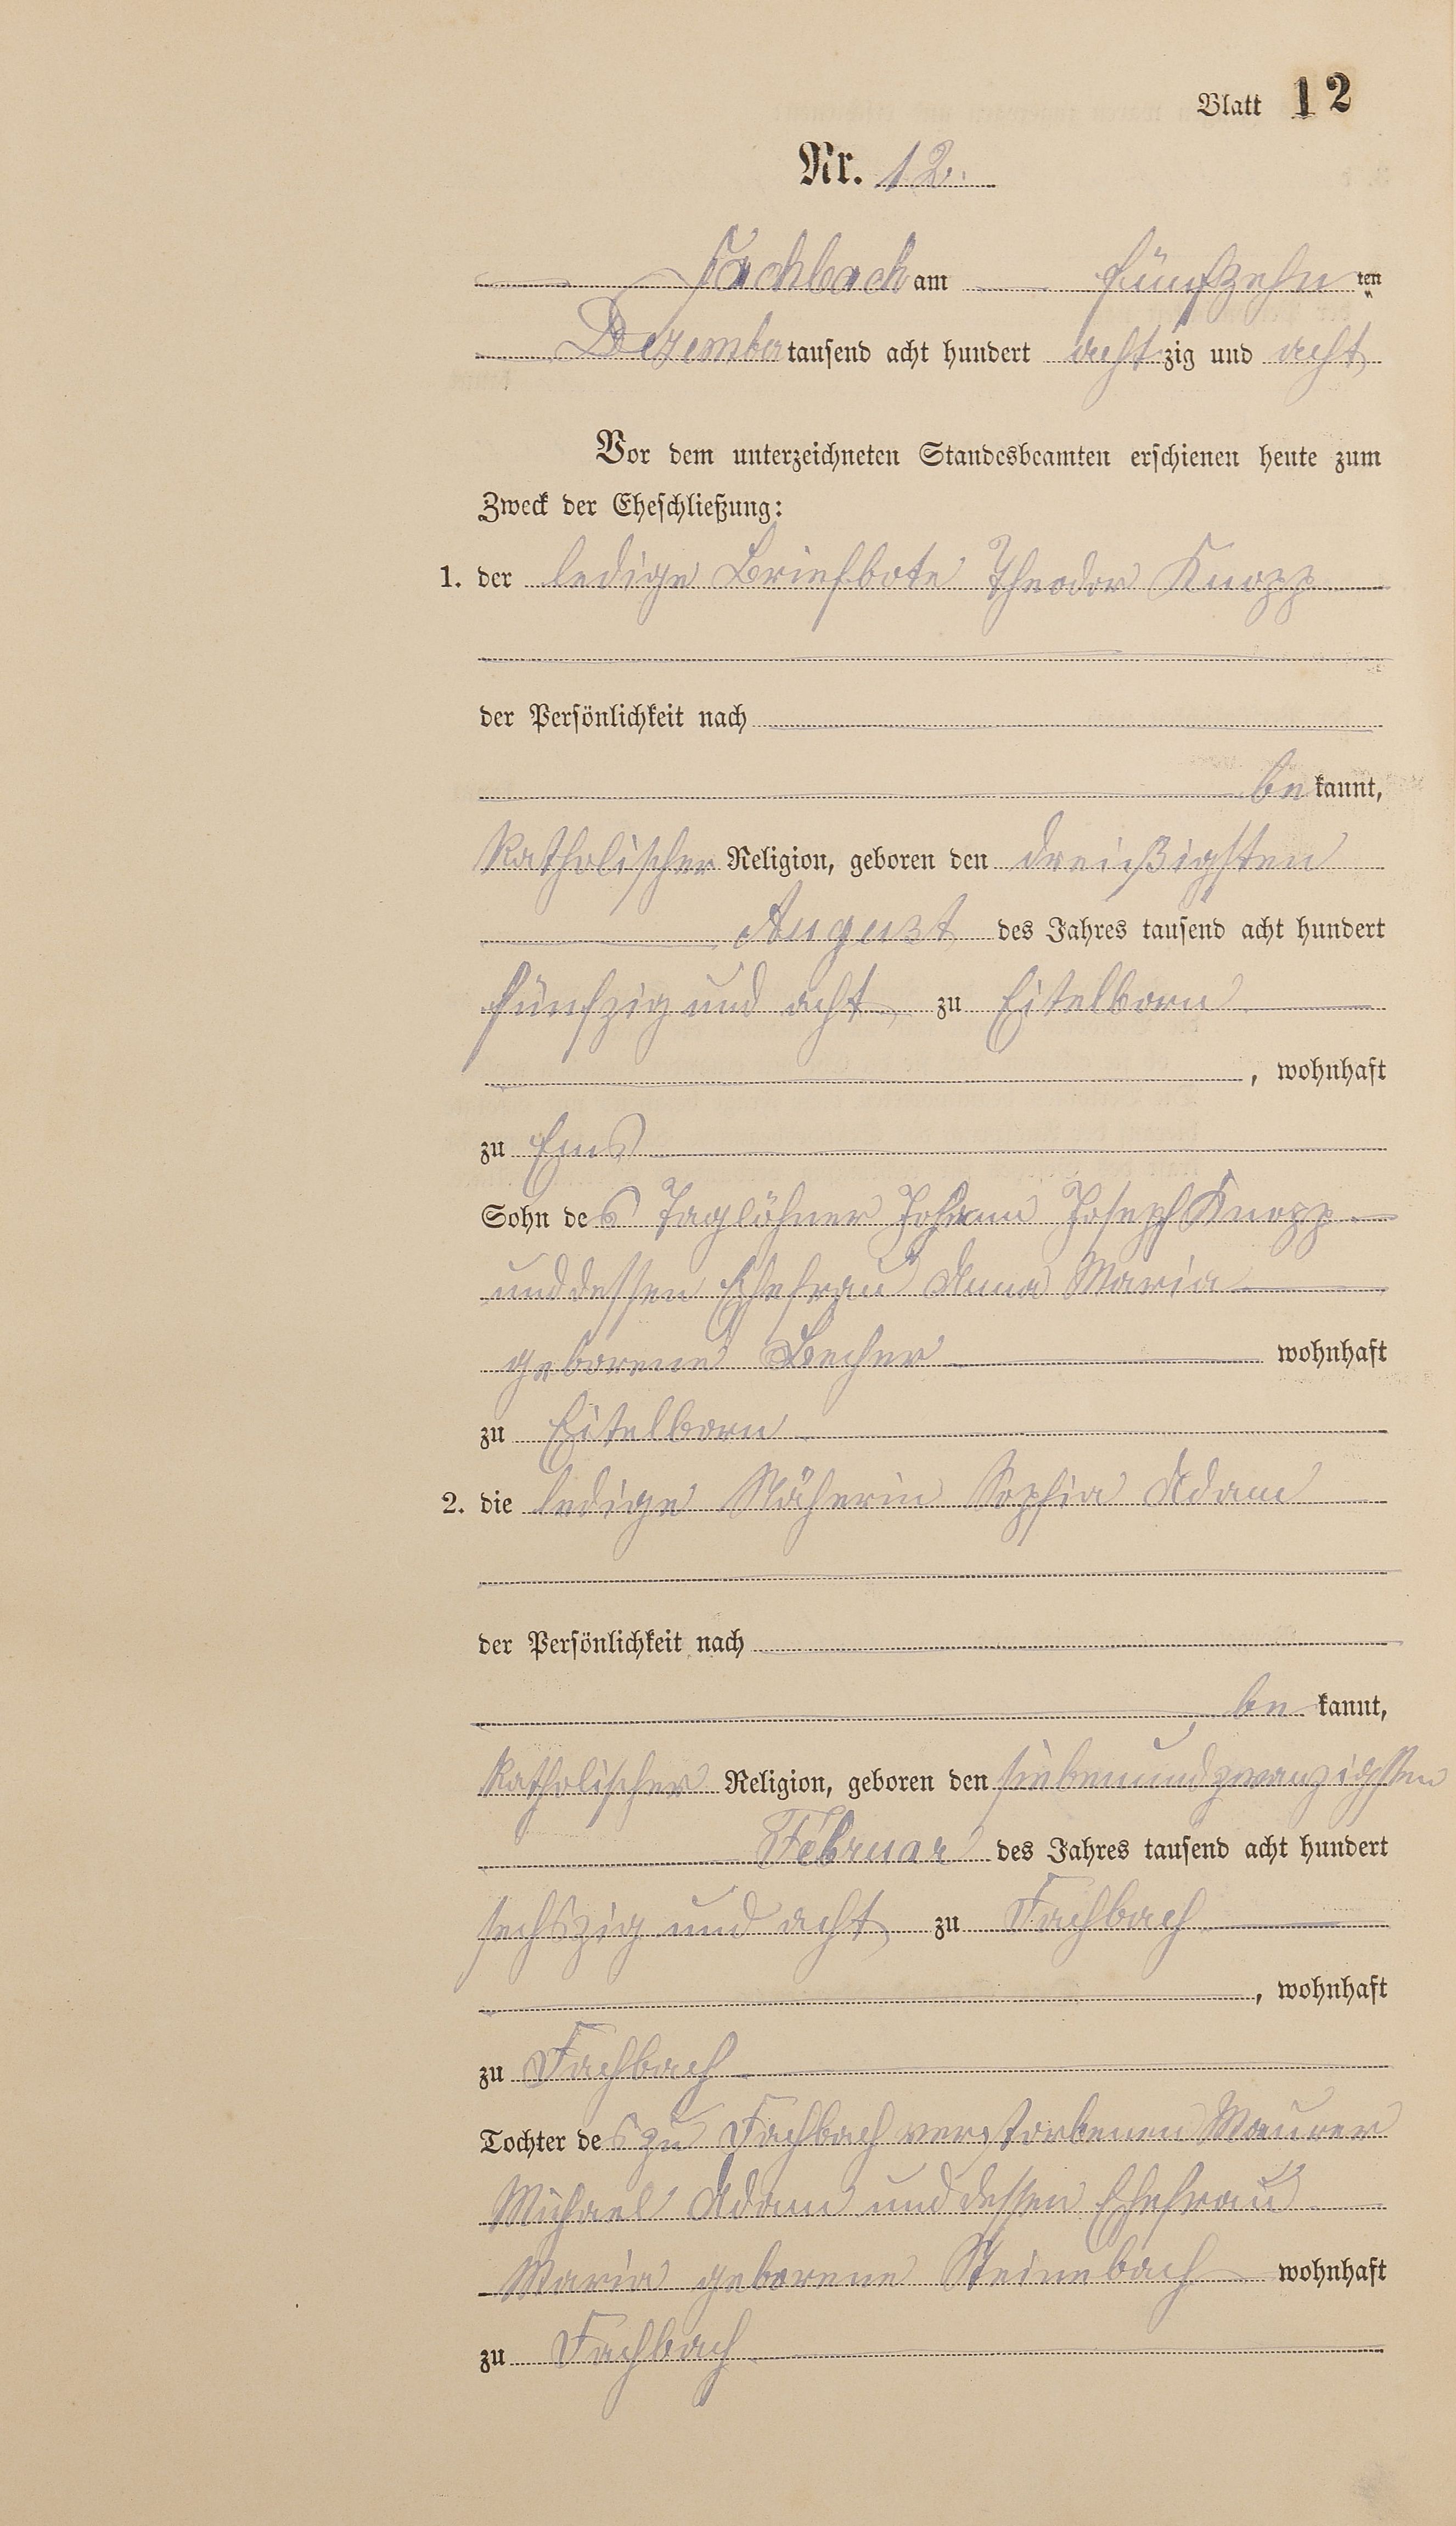 Blatt 12
Nr. 12.
Fachbach am fünfzehn ten
Dezember tausend acht hundert achtzig und acht
Vor dem unterzeichneten Standesbeamten erschienen heute zum
Zweck der Eheschließung:
1. der ledige Briefbote Theodor Knopp
der Persönlichkeit nach
be kannt,
katholischer Religion, geboren den dreißigsten
August des Jahres tausend acht hundert
fünfzig und acht zu Eitelborn
, wohnhaft
zu Ems
Sohn des Taglöhner Johann Joseph Knopp
und dessen Ehefrau Anna Maria
geborene Becher wohnhaft
zu Eitelborn
2. die ledige Näherin Sophia Adam
der Persönlichkeit nach
be kannt,
katholischer Religion, geboren den siebenundzwanzigsten
Februar des Jahres tausend acht hundert
sechszig und acht zu Fachbach
, wohnhaft
zu Fachbach
Tochter des zu Fachbach verstorbenen Maurer
Michael Adam und dessen Ehefrau
Maria geborene Steinebach wohnhaft
zu Fachbach